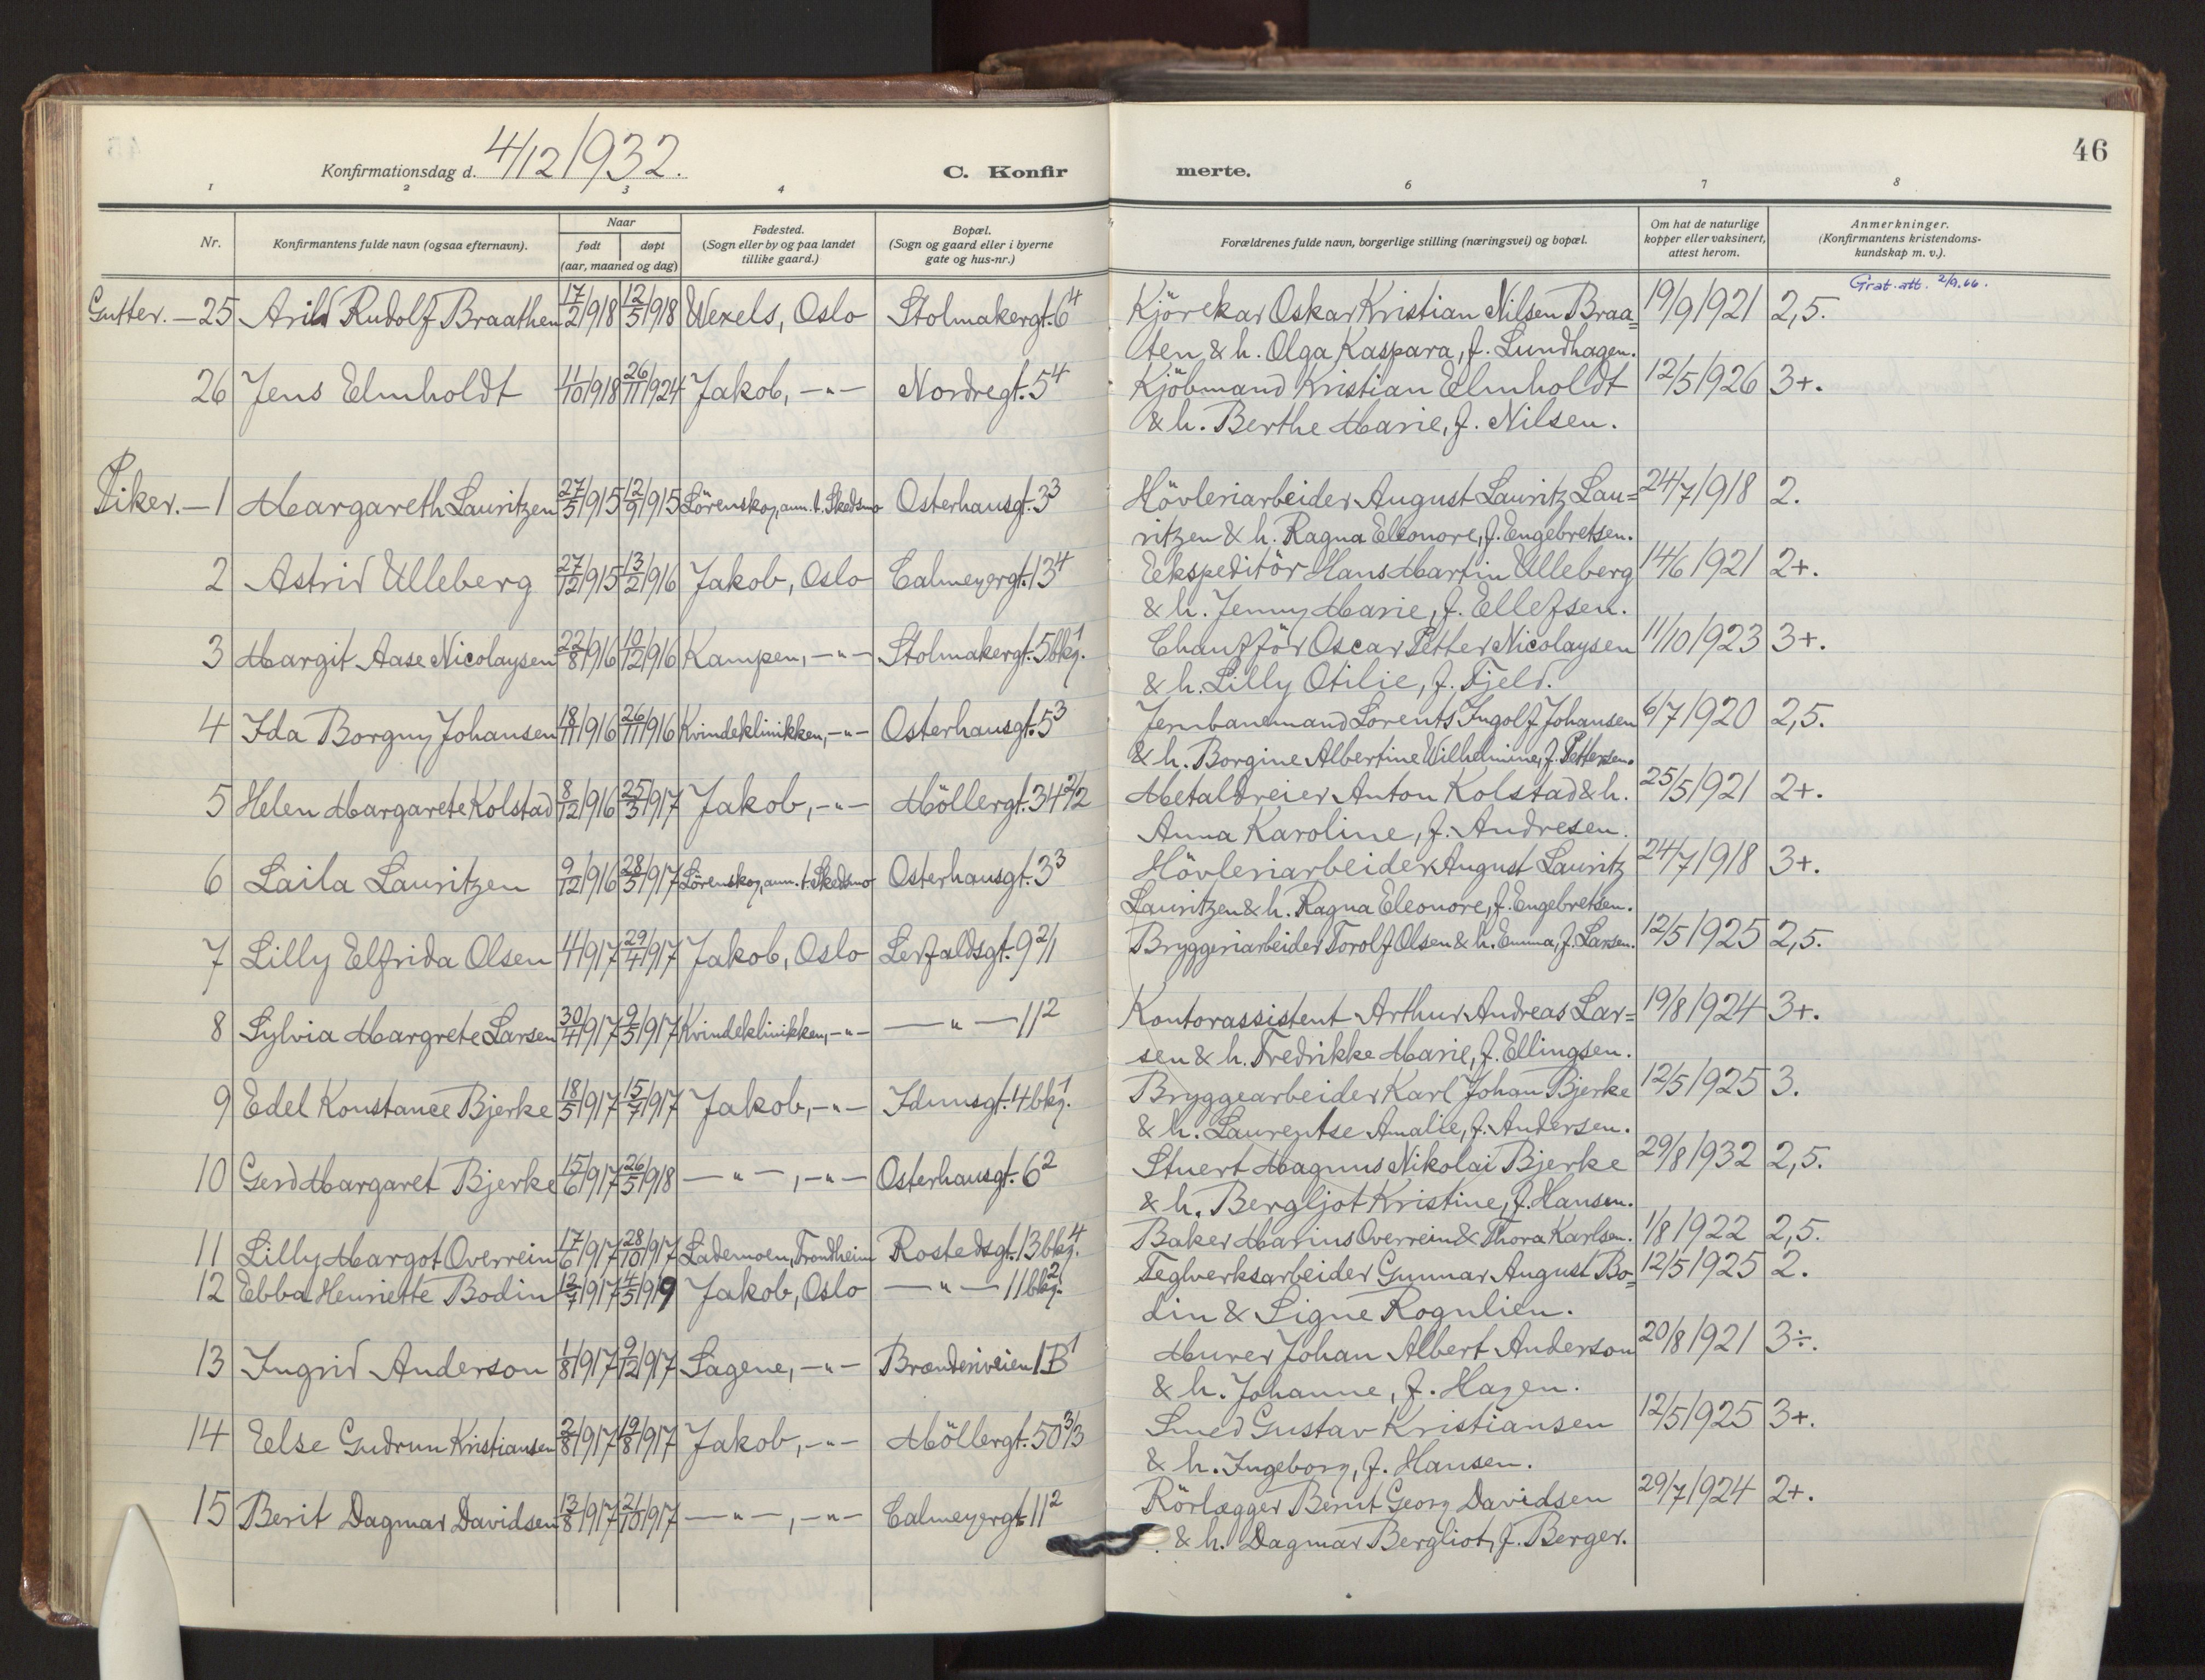 46
Konfirmationsdag d. 4/12 1932. C. Konfir merte.
1 2 3 4 6 7 8
Nr. Konfirmantens fulde navn (ogsaa efternavn). Naar født døpt (aar, maaned og dag) Fødested. (Sogn eller by og paa landet tillike gaard.) Bopæl. (Sogn og gaard eller i byerne gate og hus-nr.) Forældrenes fulde navn, borgerlige stilling (næringsvei) og bopæl. Om hat de naturlige kopper eller vaksinert, attest herom. Anmerkninger. (Konfirmantens kristendoms- kundskap m. v.).
Grat. att. 2/9.66.
Gutter. – 25 Arild Rudolf Braathen 17/2 1918 12/5 1918 Wexels, Oslo Stolmakergt. 6⁴ Kjörekar Oskar Kristian Nilsen Braa= 19/9 1921 2,5.
ten & h. Olga Kaspara, f. Lundhagen.
26 Jens Elmholdt 11/10 1918 26/11 1924 Jakob, —"— Nordregt. 5⁴ Kjöbmand Kristian Elmholdt 12/5 1926 3+.
& h. Berthe Marie, f. Nilsen.
Piker. – 1 Margareth Lauritzen 27/5 1915 12/9 1915 Lörenskog, ann. t. Skedsmo Osterhausgt. 3³ Hövleriarbeider August Lauritz Lau= 24/7 1918 2.
ritzen & h. Ragna Eleonore, f. Engebretsen.
2 Astrid Ulleberg 27/12 1915 13/2 1916 Jakob, Oslo Calmeyergt. 13⁴ Eekspeditör Hans Martin Ulleberg 14/6 1921 2+.
& h. Jenny Marie, f. Ellefsen.
3 Margit Aase Nicolaysen 22/8 1916 10/12 1916 Kampen, —"— Stolmakergt. 5 bkg.¹ Chauffför Oscar Petter Nicolaysen 11/10 1923 3+.
& h. Lilly Otilie, f. Fjeld.
4 Ida Borguny Johansen 18/11 1916 26/11 1916 Kvindeklinikken, —"— Osterhausgt. 5³ Jernbanemand Lorents Ingolf Johansen 6/7 1920 2,5.
& h. Borgine Albertine Wilhelmine, f. Pettersen.
5 Helen Margarete Kolstad 8/12 1916 25/3 1917 Jakob, —"— Möllergt. 34 2/2 Metaldreier Anton Kolstad & h. 25/5 1921 2+.
Anna Karoline, f. Andresen.
6 Laila Lauritzen 9/12 1916 28/5 1917 Lörenskog, ann. t. Skedsmo Osterhausgt. 3³ Hövleriarbeider August Lauritz 24/7 1918 3+.
Lauritzen & h. Ragna Eleonore, f. Engebretsen.
7 Lilly Elfrida Olsen 4/1 1917 29/4 1917 Jakob, Oslo Lerfaldsgt. 9 2/1 Bryggeriarbeider Torolf Olsen & h. Emma, f. Larsen. 12/5 1925 2,5.
8 Sylvia Margrete Larsen 30/4 1917 9/5 1917 Kvindeklinikken, —"— —"— 11² Kontorassistent Arthur Andreas Lar= 19/8 1924 3+.
sen & h. Fredrikke Marie, f. Ellingsen.
9 Edel Konstance Bjerke 18/5 1917 15/7 1917 Jakob, —"— Idunsgt. 4 bkg.¹ Bryggearbeider Karl Johan Bjerke 12/5 1925 3.
& h. Laurentse Amalie, f. Andersen.
10 Gerd Margaret Bjerke 15/6 1917 26/5 1918 —"—, —"— Osterhausgt. 6² Stuert Magnus Nikolai Bjerke 29/8 1932 2,5.
& h. Bergljot Kristine, f. Hansen.
11 Lilly Margot Overrein 17/6 1917 28/10 1917 Lademoen, Trondheim Rostedsgt. 13 bkg.⁴ Baker Marius Overrein & Thora Karlsen. 1/8 1922 2,5.
12 Ebba Henriette Bodin 12/7 1917 4/5 1919 Jakob, Oslo —"— 11 bkg.² Teglverksarbeider Gunnar August Bo= 12/5 1925 2.
din & Signe Rognlien.
13 Ingrid Anderson 1/8 1917 9/12 1917 Sagene, —"— Brænderiveien 1B¹ Murer Johan Albert Anderson 20/8 1921 3÷.
& h. Johanne, f. Hagen.
14 Else Gudrun Kristiansen 2/8 1917 19/8 1917 Jakob, —"— Möllergt. 50 3/3 Smed Gustav Kristiansen 12/5 1925 3+.
& h. Ingeborg, f. Hansen.
15 Berit Dagmar Davidsen 13/8 1917 21/10 1917 —"—, —"— Calmeyergt. 11² Rörlægger Bernt Georg Davidsen 29/7 1924 2+.
& h. Dagmar Bergliot, f. Berger.